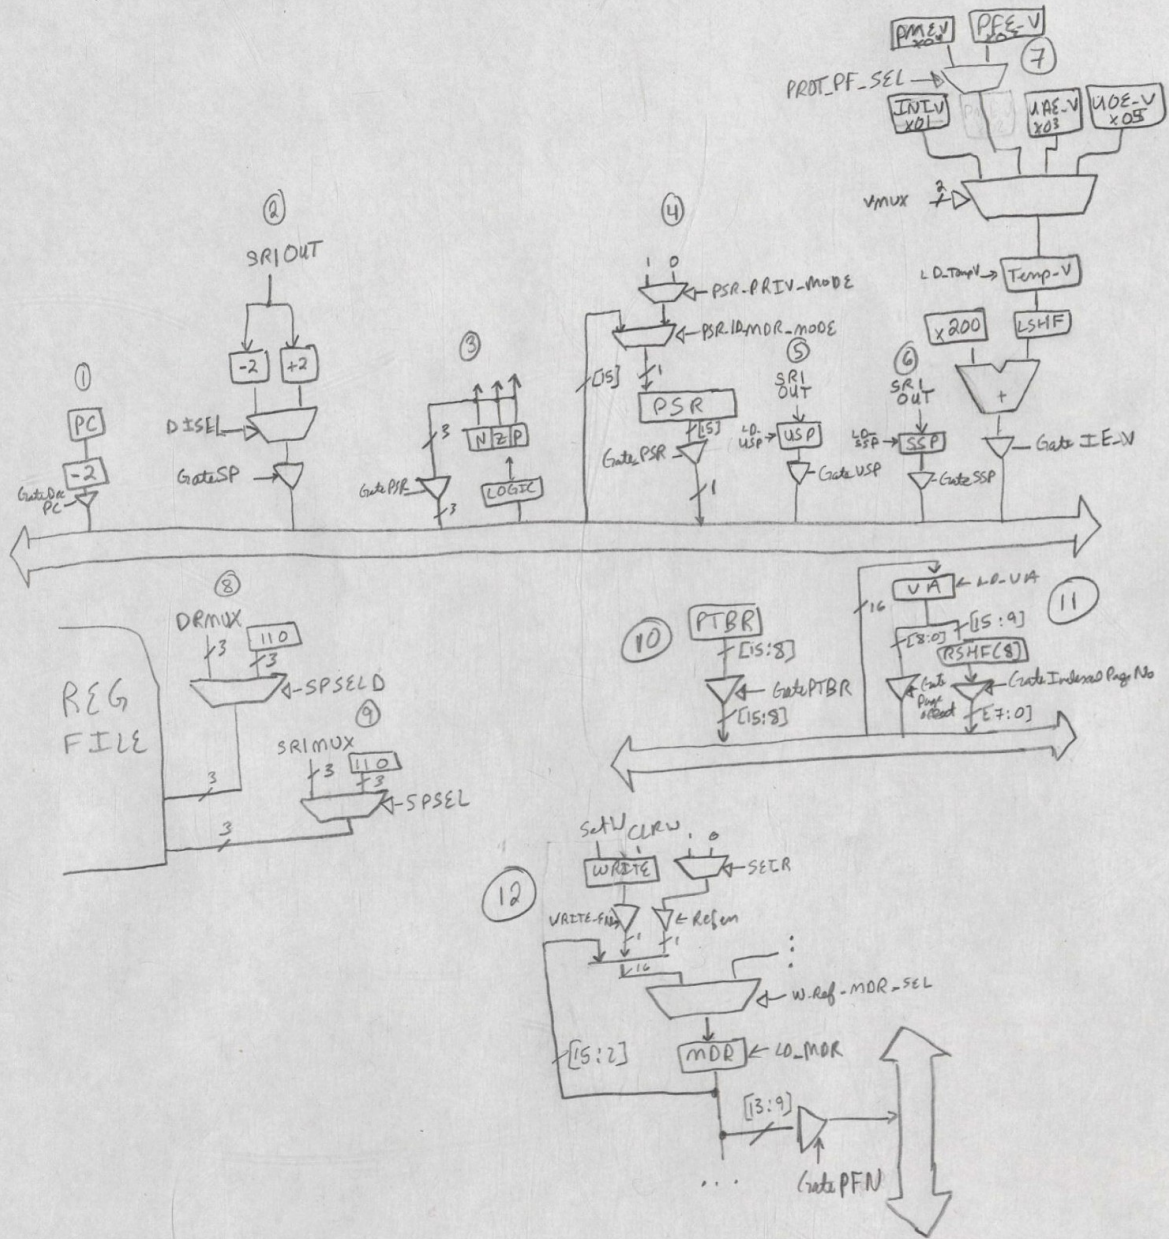 PFE-V
7
PROT_PF_SEL
INI-V
x01
UAE-V
x03
UOE-V
x05
VMUX
2
LD_TempV
Temp-V
x200
LSHF
+
Gate IE-V
1
PC
-2
Gate Dec
PC
2
SR1OUT
-2
+2
DISEL
GateSP
3
3
N Z P
LOGIC
GatePSR
3
4
1 0
PSR_PRIV_MODE
PSR_ID_MDR_MODE
[15]
1
PSR
[15]
Gate_PSR
1
5
SR1
OUT
LD-
USP
USP
GateUSP
6
SR1
OUT
LD-
SSP
SSP
GateSSP
8
DRMUX
3
110
3
SPSELD
REG
FILE
9
SR1MUX
3
110
3
SPSEL
3
3
10
PTBR
[15:8]
GatePTBR
[15:8]
11
VA
LD-VA
16
[8:0]
[15:9]
RSHF(8)
Gate
Page
Gate Indexed Page No
[7:0]
12
SetW
CLRW
1 0
WRITE
SETR
Refen
1
1
16
W-Ref-MDR_SEL
MDR
LD_MDR
[15:2]
[13:9]
Gate PFN